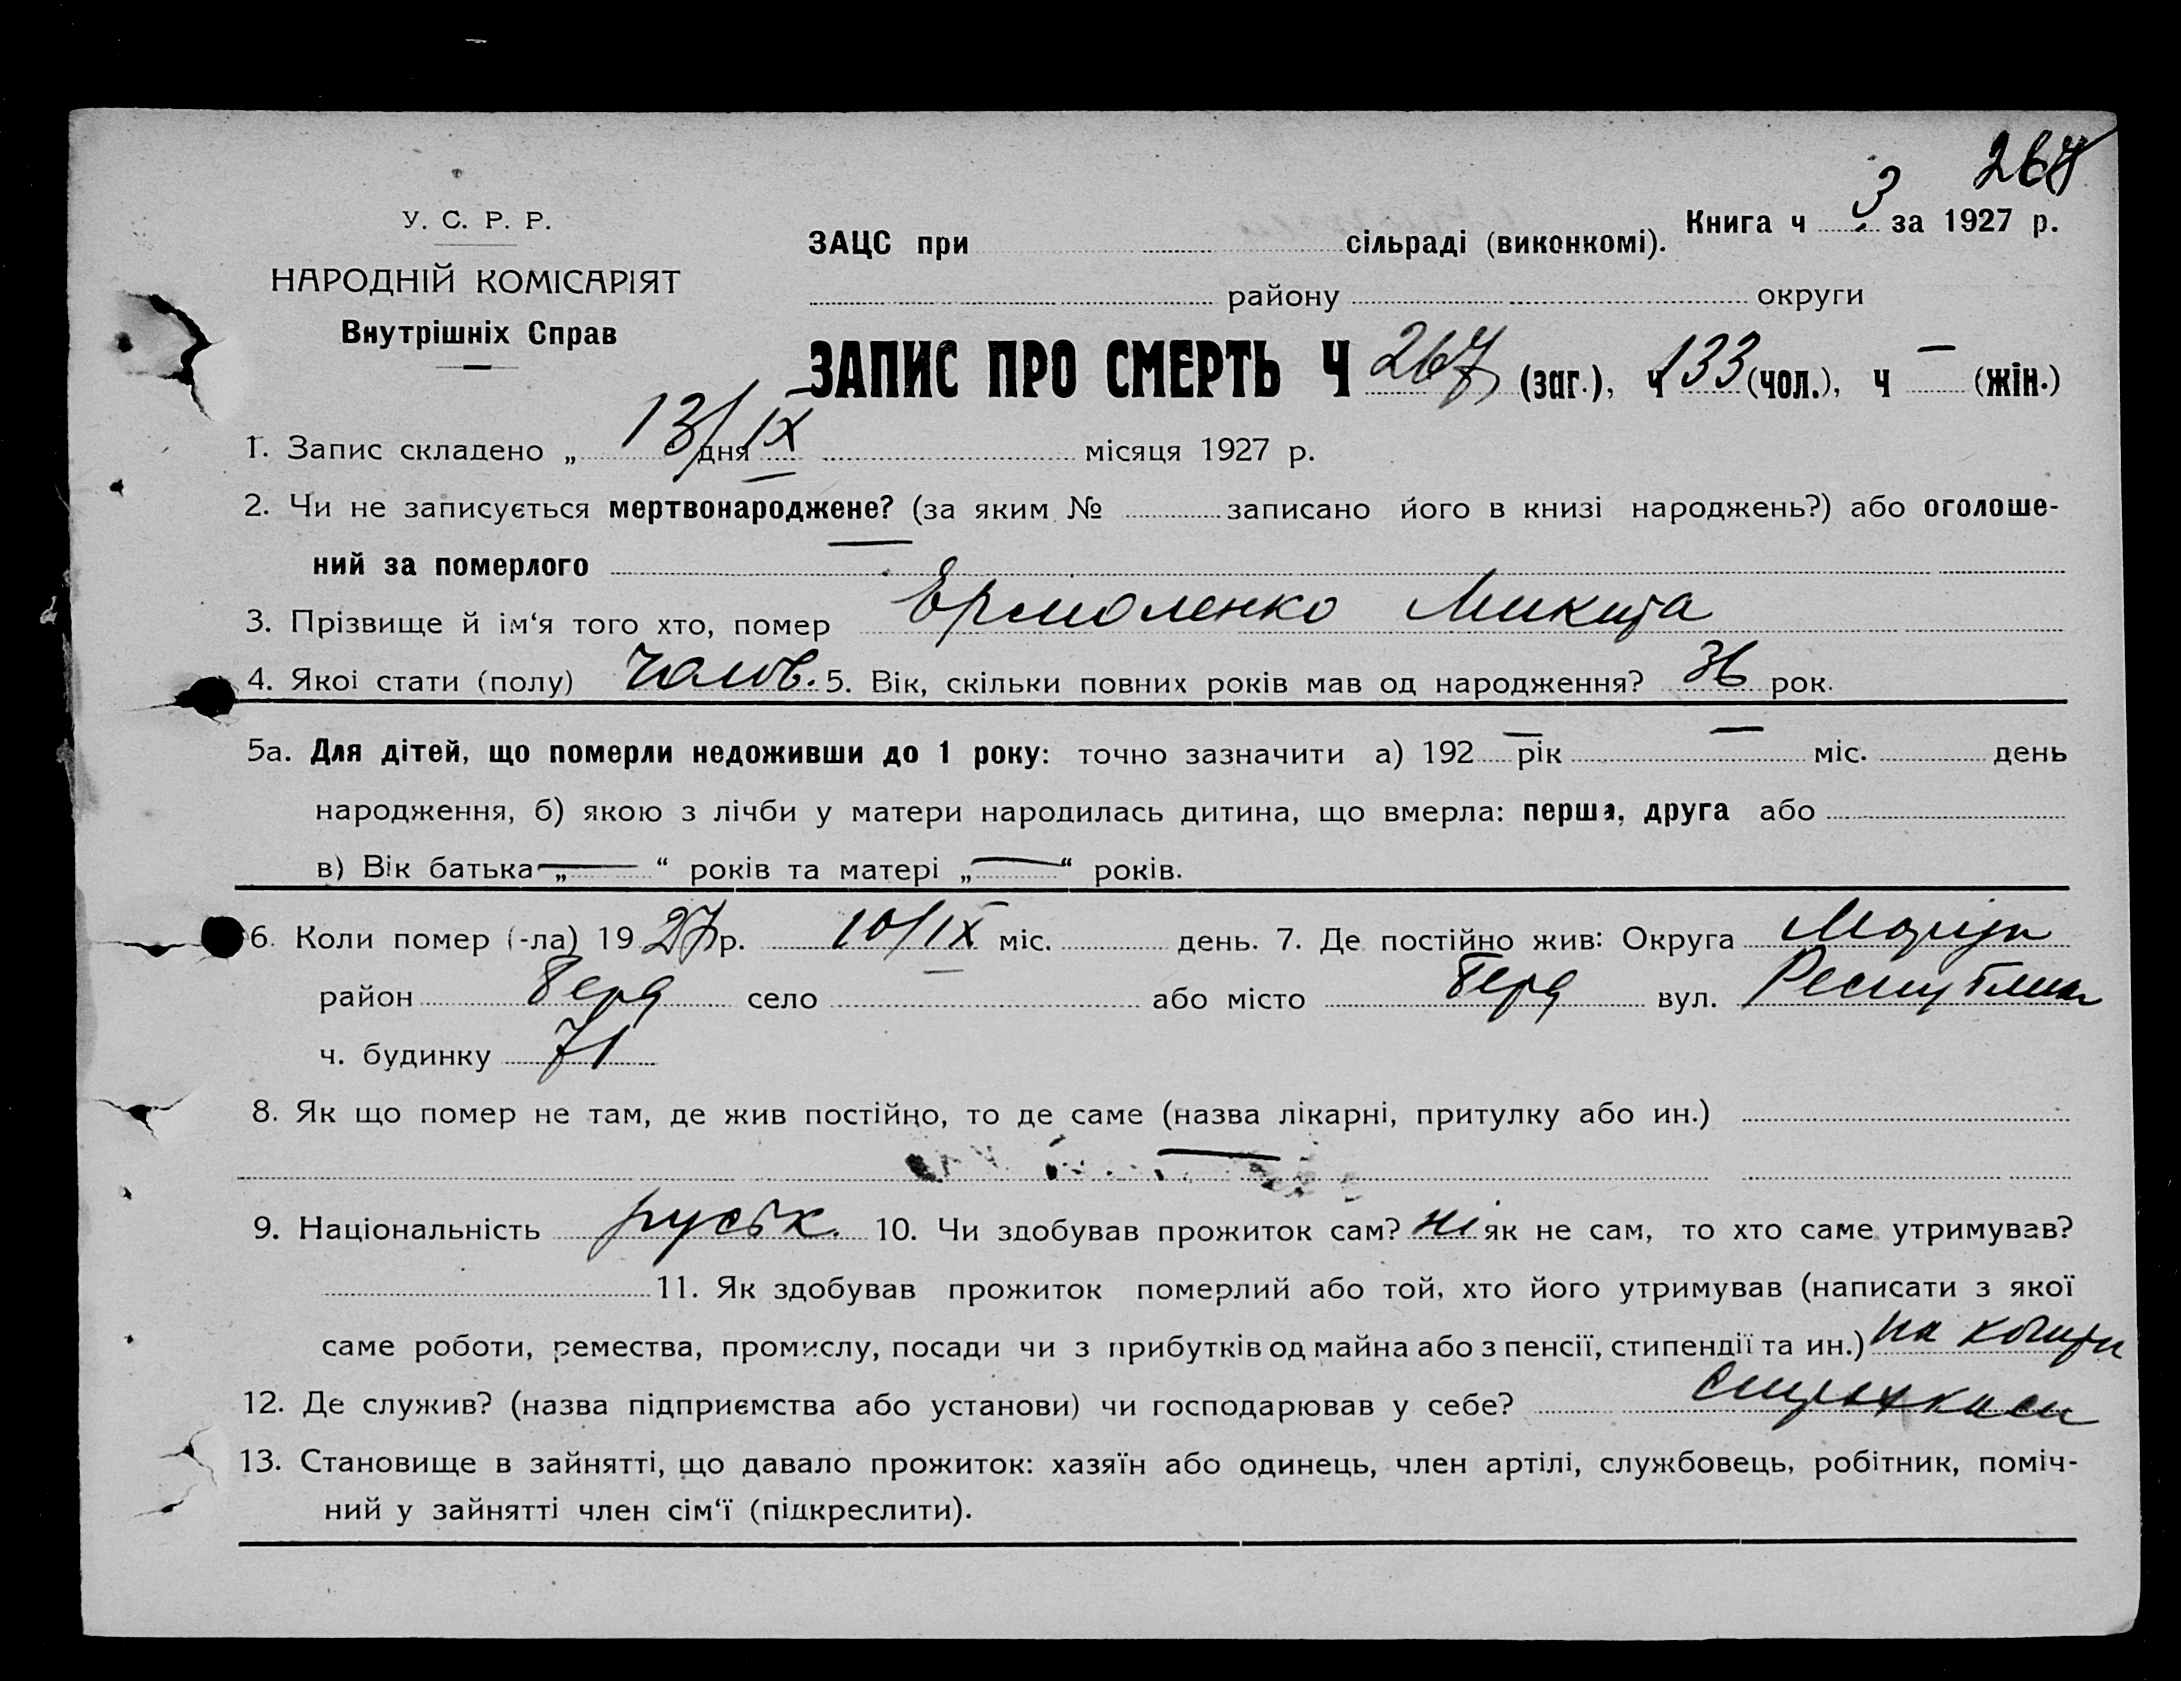 267
У. С. Р. Р.
НАРОДНІЙ КОМІСАРІЯТ
Внутрішніх Справ
Книга ч 3 за 1927 р.
ЗАЦС при сільраді (виконкомі).
району округи
ЗАПИС ПРО СМЕРТЬ Ч 267 (заг.), ч 133 (чол.), ч — (жін.)
1. Запис складено „ 13/ дня IX місяця 1927 р.
2. Чи не записується мертвонароджене? (за яким № записано його в книзі народжень?) або оголоше-
ний за померлого —
3. Прізвище й ім‘я того хто, помер Ермоленко Микита
4. Якоі стати (полу) чолов. 5. Вік, скільки повних років мав од народження? 36 рок.
5а. Для дітей, що померли недоживши до 1 року: точно зазначити а) 192 — рік — міс. день
народження, б) якою з лічби у матери народилась дитина, що вмерла: перша, друга або
в) Вік батька „ — “ років та матері „ — “ років.
6. Коли помер (-ла) 19 27 р. 10/IX міс. день. 7. Де постійно жив: Округа Маріуп
район Берд село або місто Берд вул. Республик
ч. будинку 71
8. Як що помер не там, де жив постійно, то де саме (назва лікарні, притулку або ин.)
—
9. Національність руськ. 10. Чи здобував прожиток сам? ні як не сам, то хто саме утримував?
11. Як здобував прожиток померлий або той, хто його утримував (написати з якої
саме роботи, ремества, промислу, посади чи з прибутків од майна або з пенсії, стипендії та ин.) на кошти
12. Де служив? (назва підприємства або установи) чи господарював у себе? страхкаси
13. Становище в зайнятті, що давало прожиток: хазяїн або одинець, член артілі, службовець, робітник, поміч-
ний у зайнятті член сім‘ї (підкреслити).